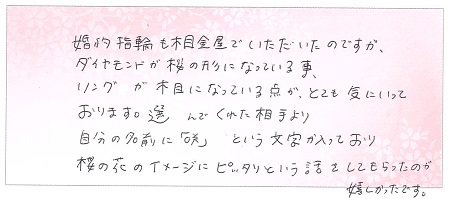 婚約指輪も杢目金屋でいただいたのですが、
ダイヤモンドが桜の形になっている事、
リングが木目になっている点が、とても気にいって
おります。選んでくれた相手より
自分の名前に「咲」という文字が入っており
桜の花のイメージにピッタリという話をしてもらったのが
嬉しかったです。